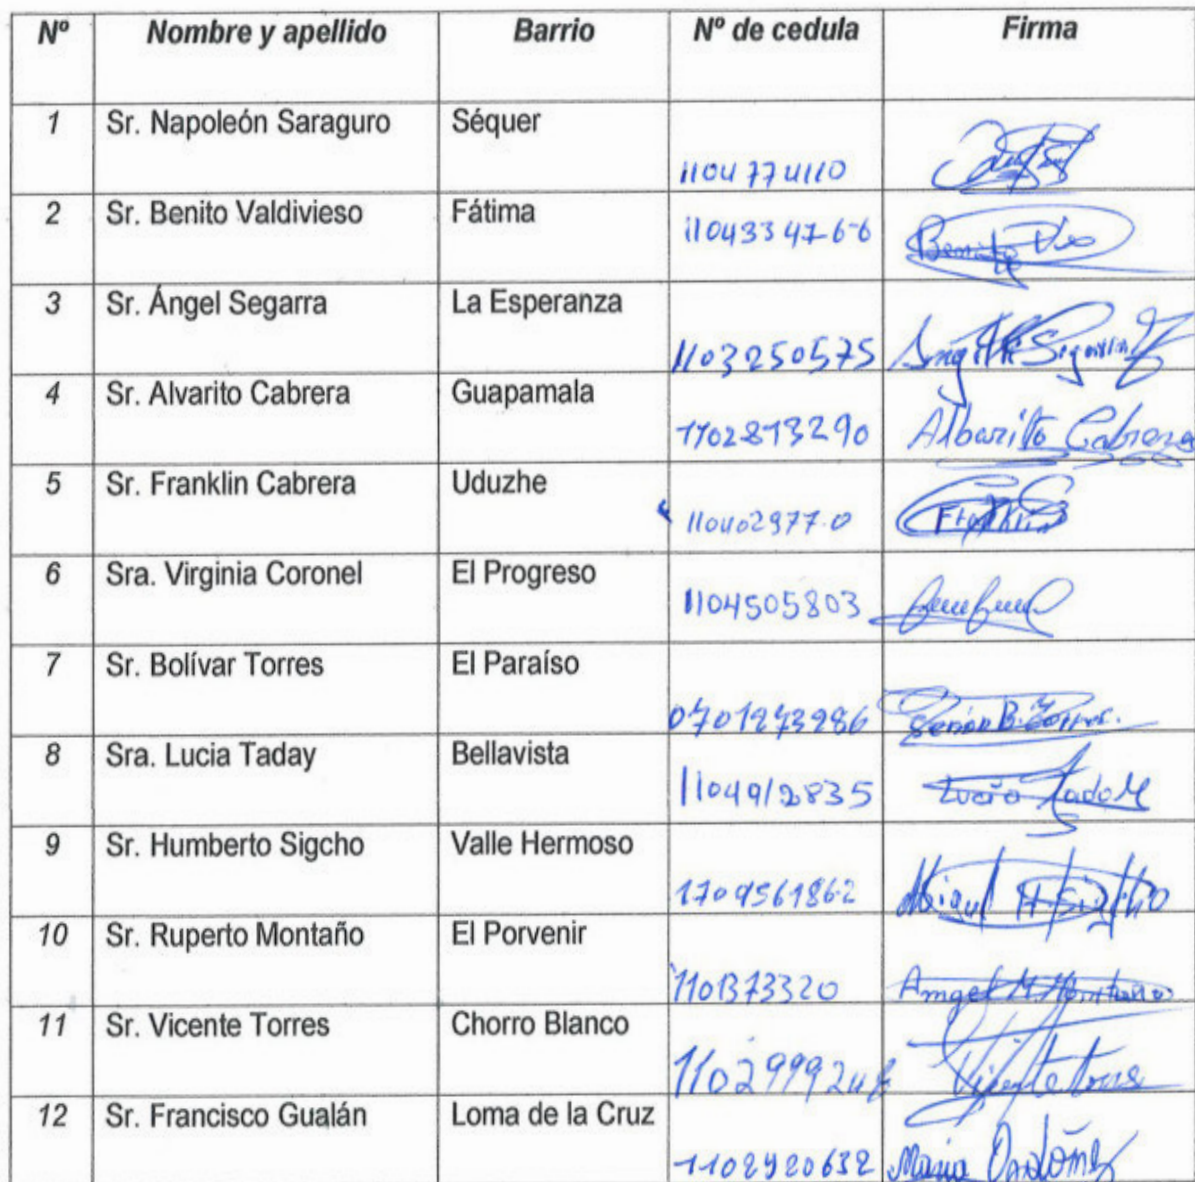 Nº Nombre y apellido Barrio Nº de cedula Firma
1 Sr. Napoleón Saraguro Séquer 1104774110
2 Sr. Benito Valdivieso Fátima 1104334766 Benito
3 Sr. Ángel Segarra La Esperanza 1103250575
4 Sr. Alvarito Cabrera Guapamala 1102813290 Albarito Cabrera
5 Sr. Franklin Cabrera Uduzhe 1104029770 Franklin
6 Sra. Virginia Coronel El Progreso 1104505803
7 Sr. Bolívar Torres El Paraíso 0701273286
8 Sra. Lucia Taday Bellavista 1104912835
9 Sr. Humberto Sigcho Valle Hermoso 1709561862
10 Sr. Ruperto Montaño El Porvenir 1101373320
11 Sr. Vicente Torres Chorro Blanco
12 Sr. Francisco Gualán Loma de la Cruz 1102920632 Maria Ordoñez